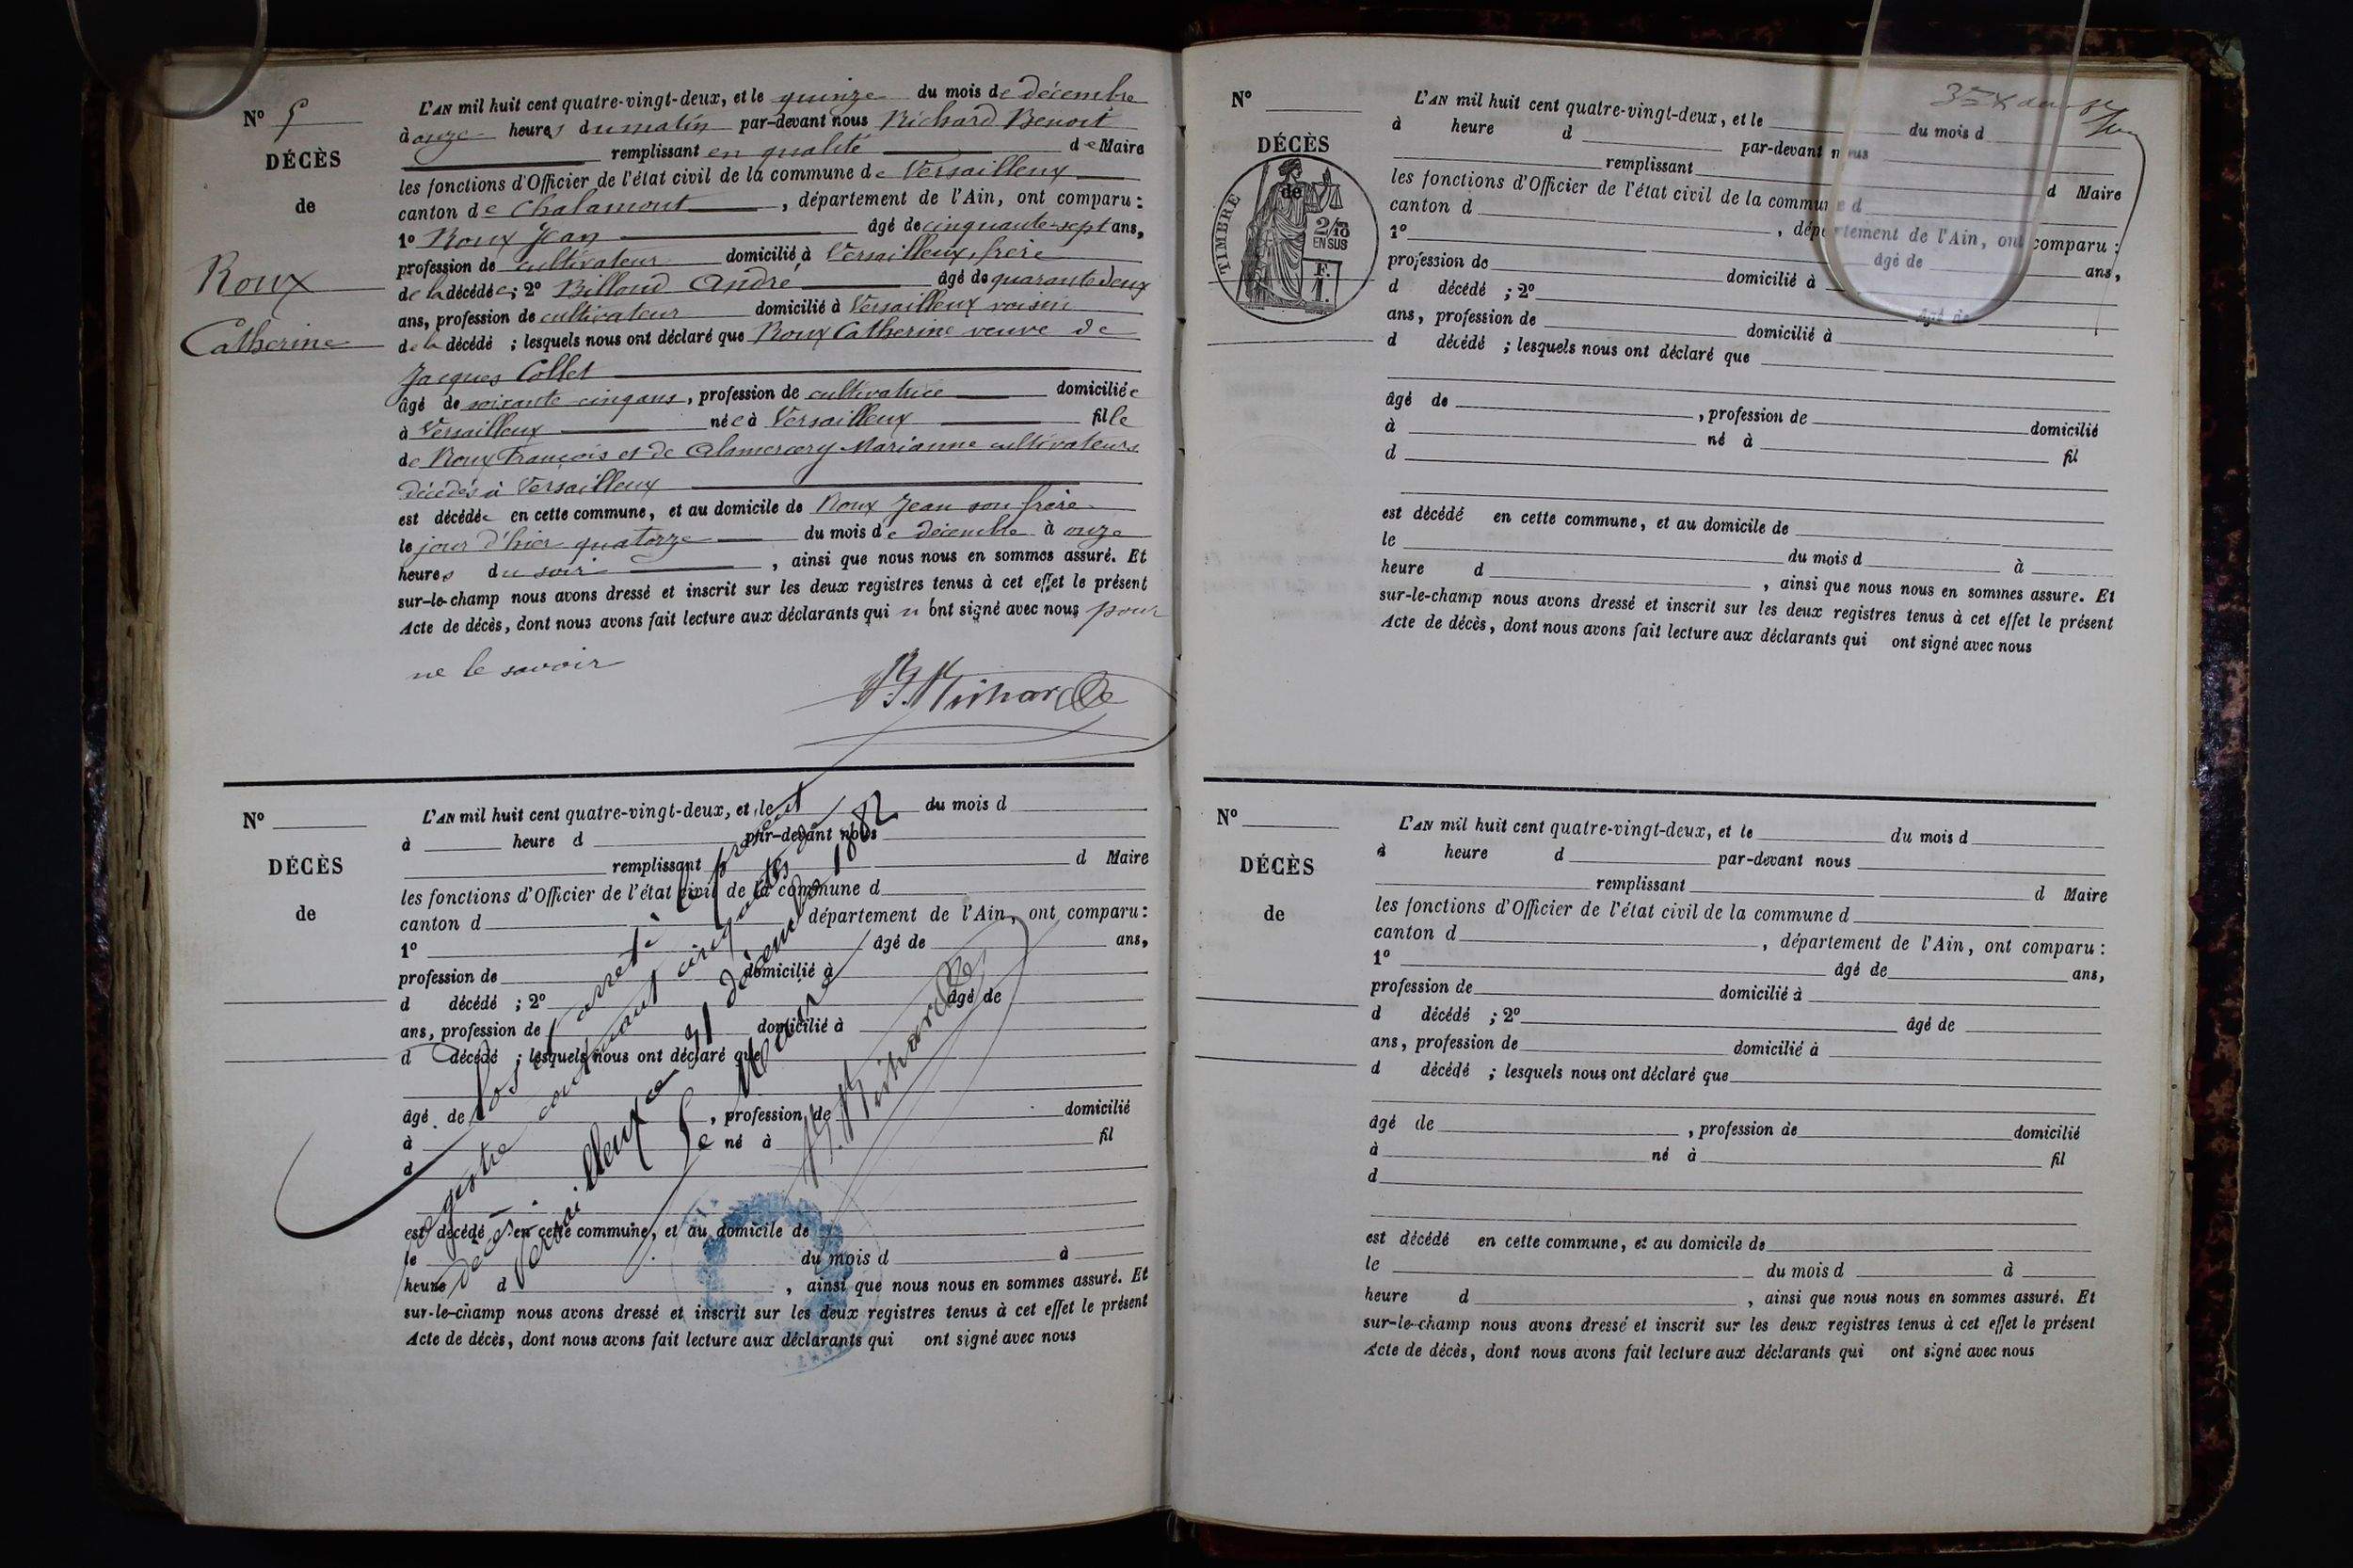 N° 5
DÉCÈS
de
Roux
Catherine
L'AN mil huit cent quatre-vingt-deux, et le quinze du mois de décembre
à onze heures du matin par-devant nous Richard Benoit
remplissant en qualité de Maire
les fonctions d'Officier de l'état civil de la commune de Versailleux
canton de Chalamont, département de l'Ain, ont comparu :
1° Roux Jean âgé de cinquante-sept ans,
profession de cultivateur domicilié à Versailleux, frère
de la décédée ; 2° Billoud André âgé de quarante deux
ans, profession de cultivateur domicilié à Versailleux voisin
de la décédé ; lesquels nous ont déclaré que Roux Catherine veuve de
Jacques Collet
âgé de soixante cinq ans, profession de cultivatrice domiciliée
à Versailleux née à Versailleux fille
de Roux François et de Alamercery Marianne cultivateurs
décédés à Versailleux
est décédée en cette commune, et au domicile de Roux Jean son frère
le jour d'hier quatorze du mois de décembre à onze
heures du soir, ainsi que nous nous en sommes assuré. Et
sur-le-champ nous avons dressé et inscrit sur les deux registres tenus à cet effet le présent
Acte de décès, dont nous avons fait lecture aux déclarants qui n'ont signé avec nous pour
ne le savoir
B. Richard
N°
DÉCÈS
de
L'AN mil huit cent quatre-vingt-deux, et le du mois d
à heure d par-devant nous
remplissant d Maire
les fonctions d'Officier de l'état civil de la commune d
canton d département de l'Ain, ont comparu :
1° âgé de ans,
profession de domicilié à
d décédé ; 2° âgé de
ans, profession de domicilié à
d décédé ; lesquels nous ont déclaré que
âgé de , profession de domicilié
à né à fil
d
est décédé en cette commune, et au domicile de
le du mois d à
heure d , ainsi que nous nous en sommes assuré. Et
sur-le-champ nous avons dressé et inscrit sur les deux registres tenus à cet effet le présent
Acte de décès, dont nous avons fait lecture aux déclarants qui ont signé avec nous
Clos et arrêté le présent
registre contenant cinq actes de
décès.
Versailleux ce 31 décembre 1882
Le Maire
B. Richard
N°
DÉCÈS
de
TIMBRE
2/10
EN SUS
F.
1.
L'AN mil huit cent quatre-vingt-deux, et le du mois d
à heure d par-devant nous
remplissant d Maire
les fonctions d'Officier de l'état civil de la commune d
canton d , département de l'Ain, ont comparu :
1° âgé de ans,
profession de domicilié à
d décédé ; 2° âgé de
ans, profession de domicilié à
d décédé ; lesquels nous ont déclaré que
âgé de , profession de domicilié
à né à fil
d
est décédé en cette commune, et au domicile de
le du mois d à
heure d , ainsi que nous nous en sommes assuré. Et
sur-le-champ nous avons dressé et inscrit sur les deux registres tenus à cet effet le présent
Acte de décès, dont nous avons fait lecture aux déclarants qui ont signé avec nous
N°
DÉCÈS
de
L'AN mil huit cent quatre-vingt-deux, et le du mois d
à heure d par-devant nous
remplissant d Maire
les fonctions d'Officier de l'état civil de la commune d
canton d , département de l'Ain, ont comparu :
1° âgé de ans,
profession de domicilié à
d décédé ; 2° âgé de
ans, profession de domicilié à
d décédé ; lesquels nous ont déclaré que
âgé de , profession de domicilié
à né à fil
d
est décédé en cette commune, et au domicile de
le du mois d à
heure d , ainsi que nous nous en sommes assuré. Et
sur-le-champ nous avons dressé et inscrit sur les deux registres tenus à cet effet le présent
Acte de décès, dont nous avons fait lecture aux déclarants qui ont signé avec nous